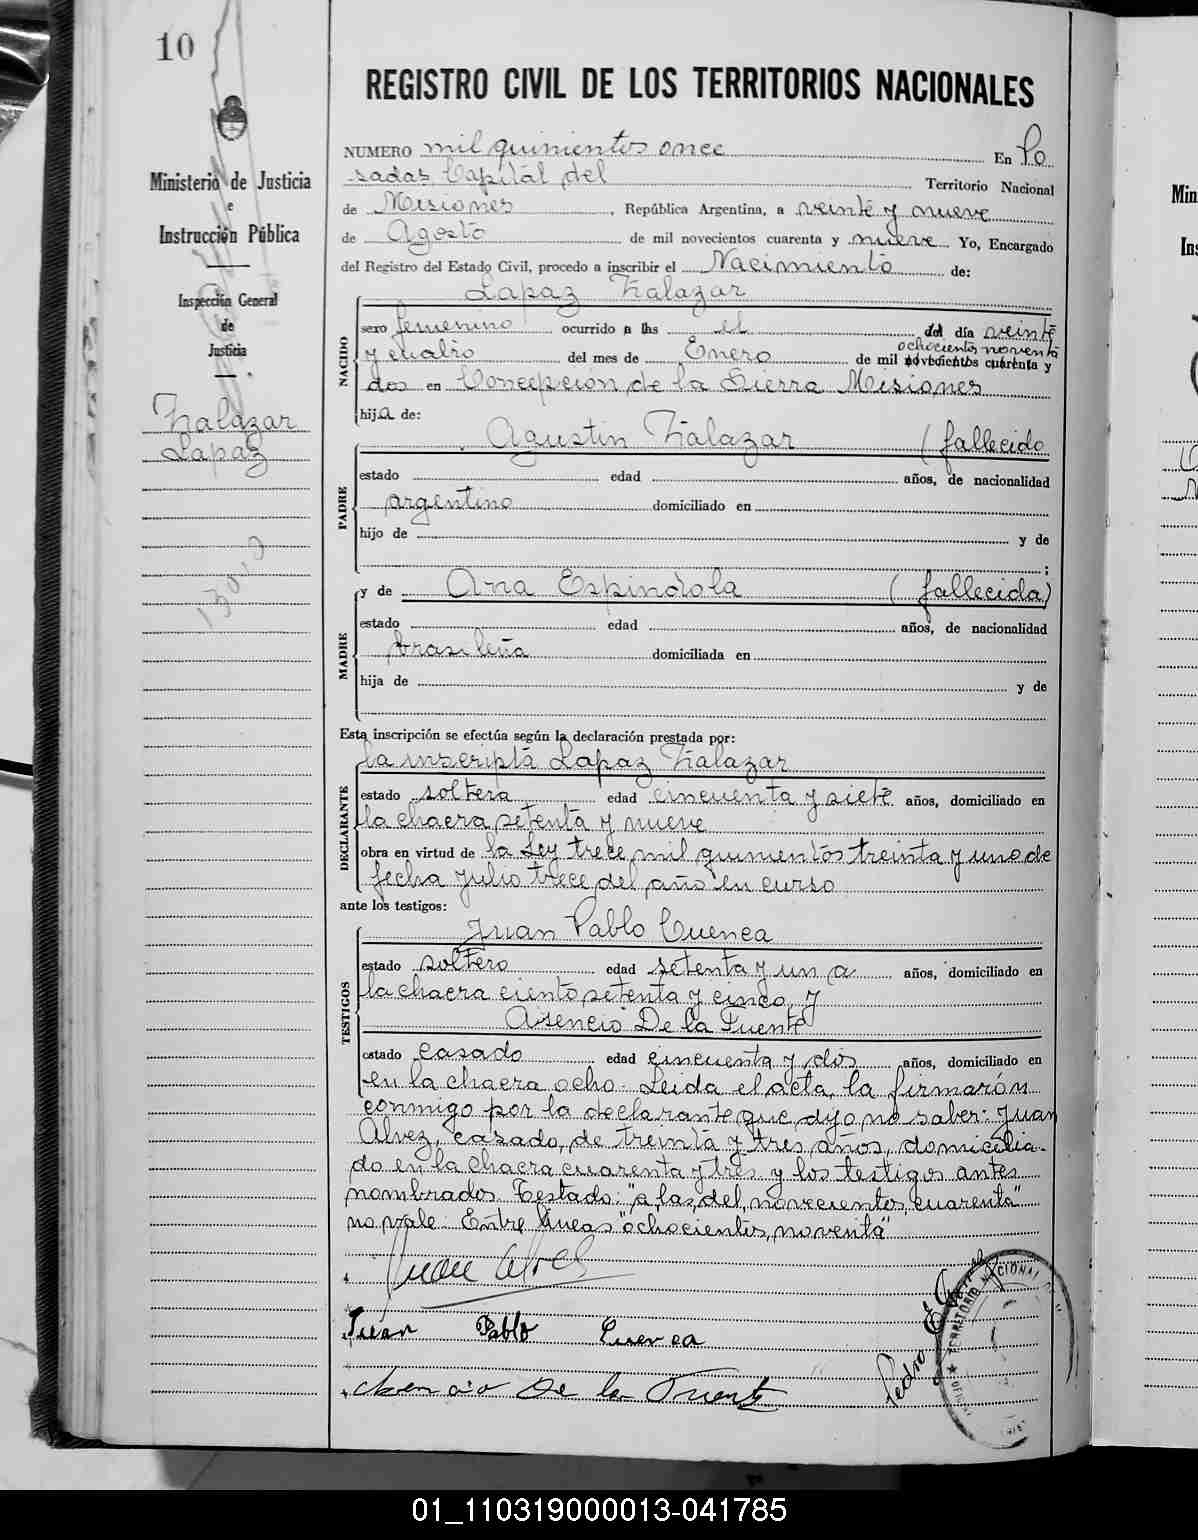 10
REGISTRO CIVIL DE LOS TERRITORIOS NACIONALES
Ministerio de Justicia
e
Instrucción Pública
Inspección General
de
Justicia
Zalazar
Lapaz
NUMERO mil quinientos once En Po
sadas Capital del Territorio Nacional
de Misiones, República Argentina, a veinte y nueve
de Agosto de mil novecientos cuarenta y nueve Yo, Encargado
del Registro del Estado Civil, procedo a inscribir el Nacimiento de:
NACIDO
Lapaz Zalazar
sexo femenino ocurrido a las el del día veinte
ochocientos noventa
y cuatro del mes de Enero de mil novecientos cuarenta y
dos en Concepcion de la Sierra Misiones
hija de:
PADRE
Agustin Zalazar (fallecido
estado edad años, de nacionalidad
argentino domiciliado en
hijo de y de
;
MADRE
y de Ana Espindola (fallecida)
estado edad años, de nacionalidad
brasileña domiciliada en
hija de y de
Esta inscripción se efectúa según la declaración prestada por:
DECLARANTE
la inscripta Lapaz Zalazar
estado soltera edad cincuenta y siete años, domiciliado en
la chacra setenta y nueve
obra en virtud de la Ley trece mil quinientos treinta y uno de
fecha Julio trece del año en curso
ante los testigos:
TESTIGOS
Juan Pablo Cuenca
estado soltero edad setenta y un a años, domiciliado en
la chacra ciento setenta y cinco, y
Asencio De la Fuente
estado casado edad cincuenta y dós años, domiciliado en
en la chacra ocho. Leida el acta, la firmarón
conmigo por la declarante que dijo no saber: Juan
Alvez, casado, de treinta y tres años, domicilia-
do en la chacra cuarenta y tres y los testigos antes
nombrados. Testado: "a las, del, novecientos, cuarenta"
no vale: Entre lineas "ochocientos, noventa"
Juan Alves
Juan Pablo Cuenca
Asencio De la Fuente
Pedro E.
TERRITORIO NACIONAL
01_110319000013-041785